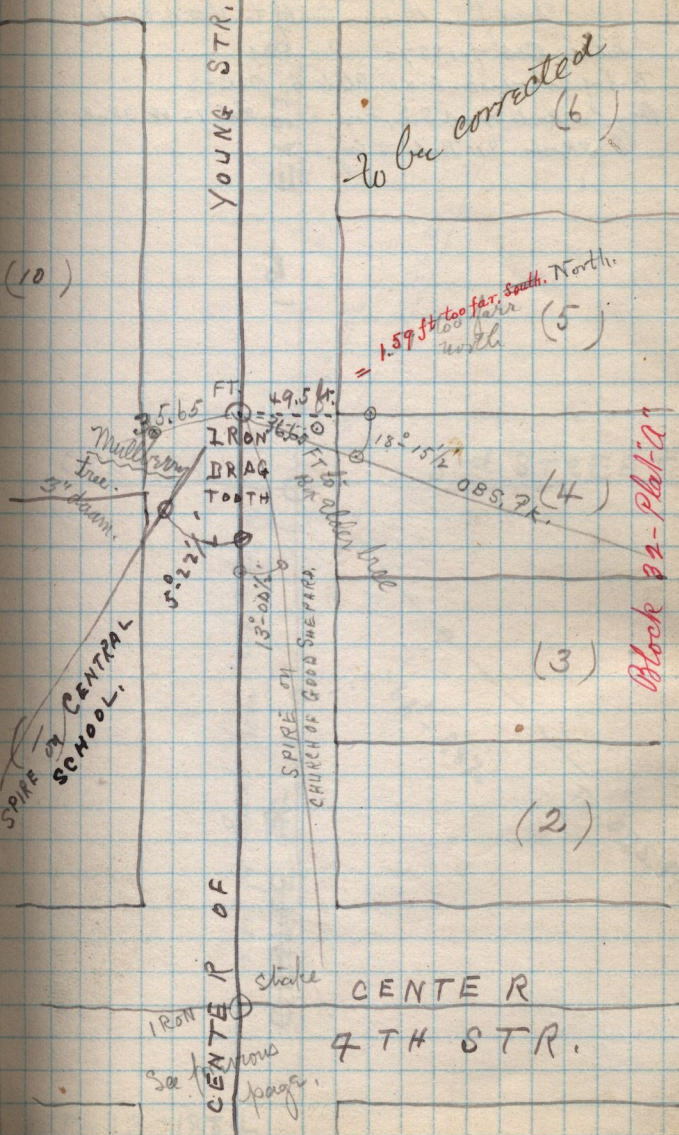 YOUNG STR.
to be corrected
(6)
(10)
= 1.59 ft too far. South. North.
too farr
north
(5)
FT.
35.65
49.5 ft.
36.65 FT to
an alder tree
IRON
BRAG
TOOTH
Mulberry
tree.
3" daam.
18°-15½'
OBS. PK.
(4)
Block 32-Plat-"A"
5°-22'
13°-00½'
SPIRE on CENTRAL
SCHOOL.
SPIRE on
CHURCH OF GOOD SHEPARD.
(3)
(2)
CENTER OF
stake
IRON
CENTER
7TH STR.
See previous
page.